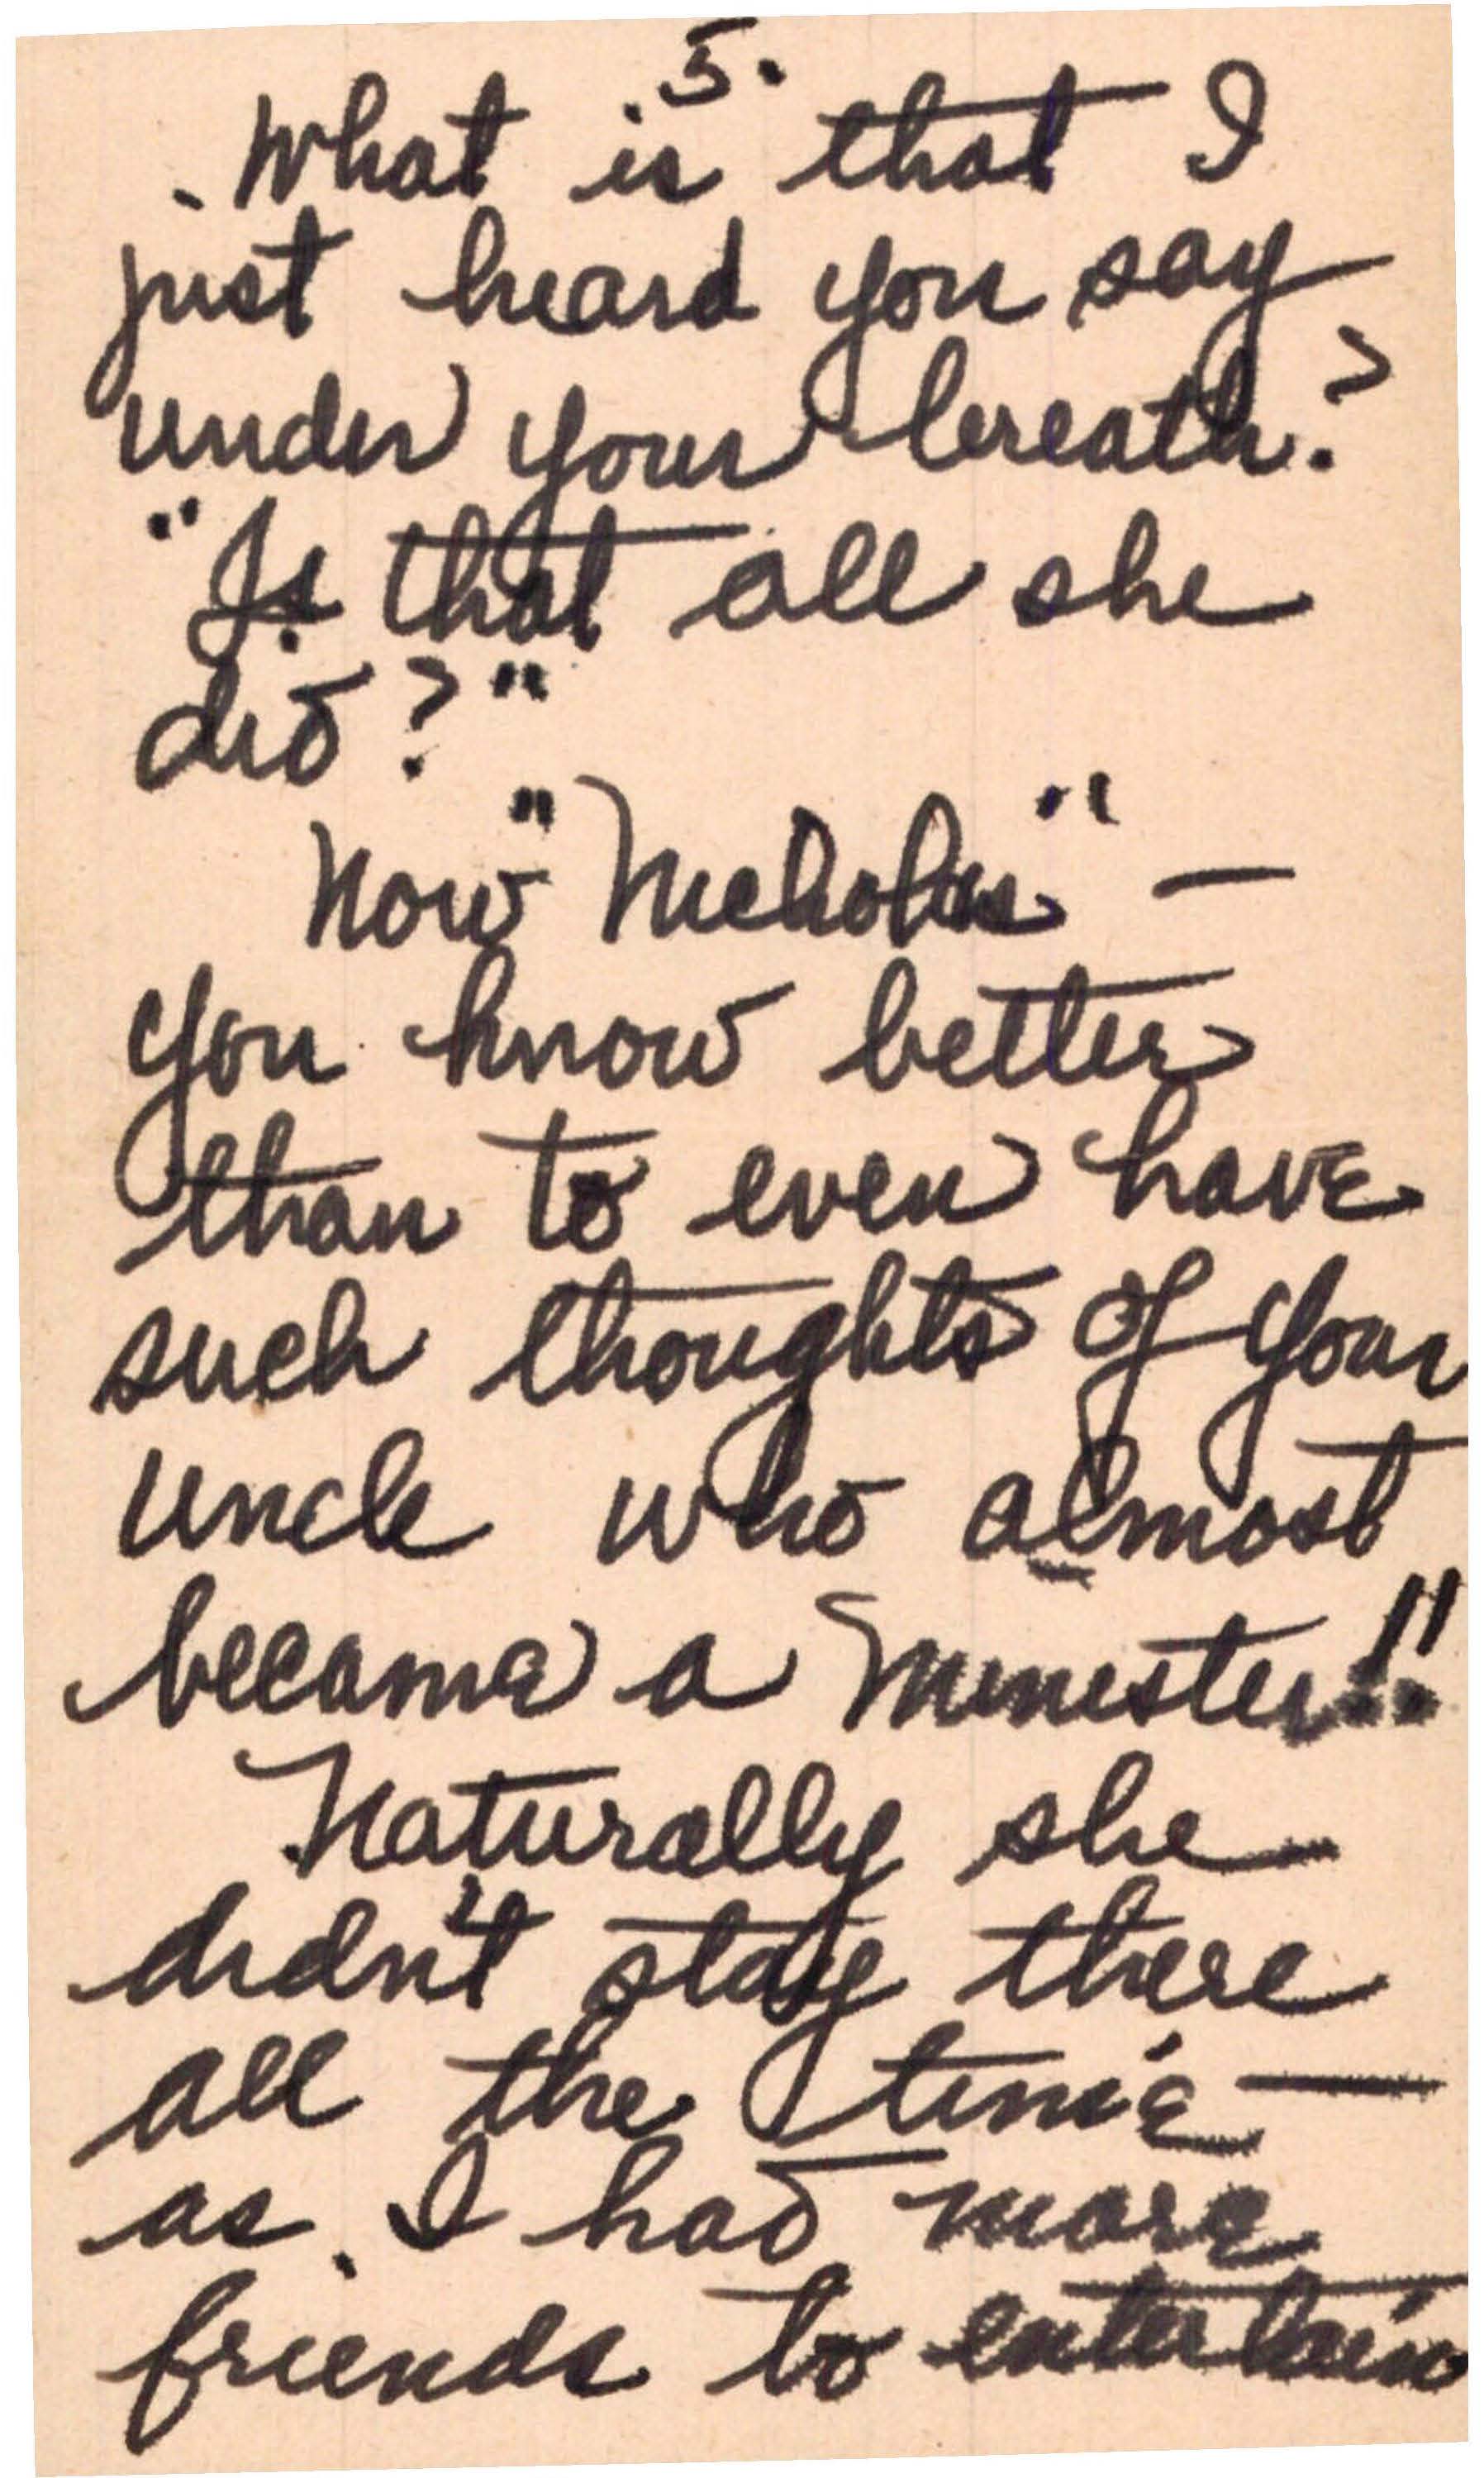 .5.
What is that I
just heard you say
under your breath?
"Is that all she
did?"
Now "Nicholas" —
you know better
than to even have
such thoughts of your
uncle who almost
became a Minister!!
Naturally she
didn't stay there
all the time —
as I had more
friends to entertain